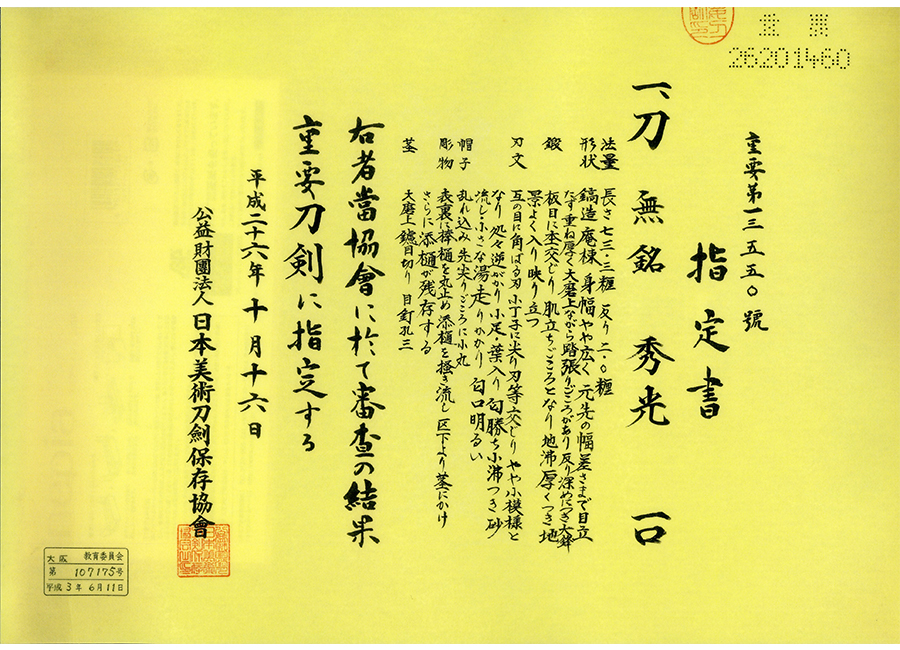 重要第一三五五〇號
指定書
一、刀 無銘 秀光 一口
法量 長さ七三・三糎 反り二・〇糎
形状 鎬造 庵棟 身幅やや広く 元先の幅差さまで目立
たず 重ね厚く 大磨上ながら踏張りごころがあり 反り深めにつき 大鋒
鍛 板目に杢交じり 肌立ちごころとなり 地沸厚くつき 地
景よく入り 映り立つ
刃文 互の目に角ばる刃 小丁子に尖り刃等交じり やや小模様と
なり 処々逆がかり 小足・葉入り 匂勝ち小沸つき 砂
流し・小さな湯走りかかり 匂口明るい
帽子 乱れ込み 先尖りごころに小丸
彫物 表裏に棒樋を丸止め 添樋を掻き流し 区下より茎にかけ
さらに添樋が残存する
茎 大磨上 鑢目切り 目釘孔三
右者當協會に於て審査の結果
重要刀剣に指定する
平成二十六年十月十六日
公益財團法人日本美術刀劍保存協會
重票
26201460
大阪 教育委員会
第 107175号
平成 3年 6月11日